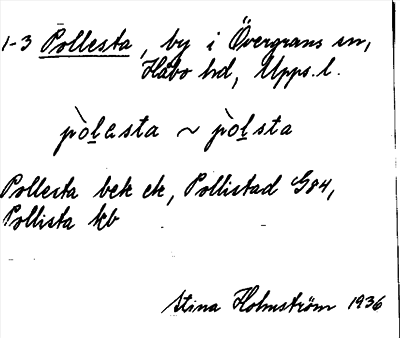 1-3 Pollesta, by i Övergrans sn,
Håbo hd, Upps. l.
pòlasta ~ pòlsta
Pollesta bek ek, Pollistad G84,
Pollista kb
Stina Holmström 1936